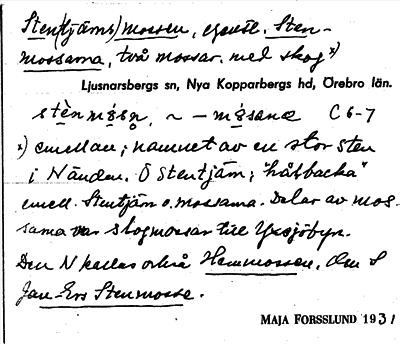 Sten(tjärns)mossen, egentl. Sten-
mossarna, två mossar med skog x)
Ljusnarsbergs sn, Nya Kopparbergs hd, Örebro län.
C 6-7
x) emellan; namnet av en stor sten
i Nänden. O Stentjärn; "håtbacka"
emell. Stentjärn o. mossarna. Delar av mos-
sarna var skogmossar till Yxsjöbyn.
Den N kallas också Hemmossen, den S
Jan-Ers Stenmosse.
MAJA FORSSLUND 1931